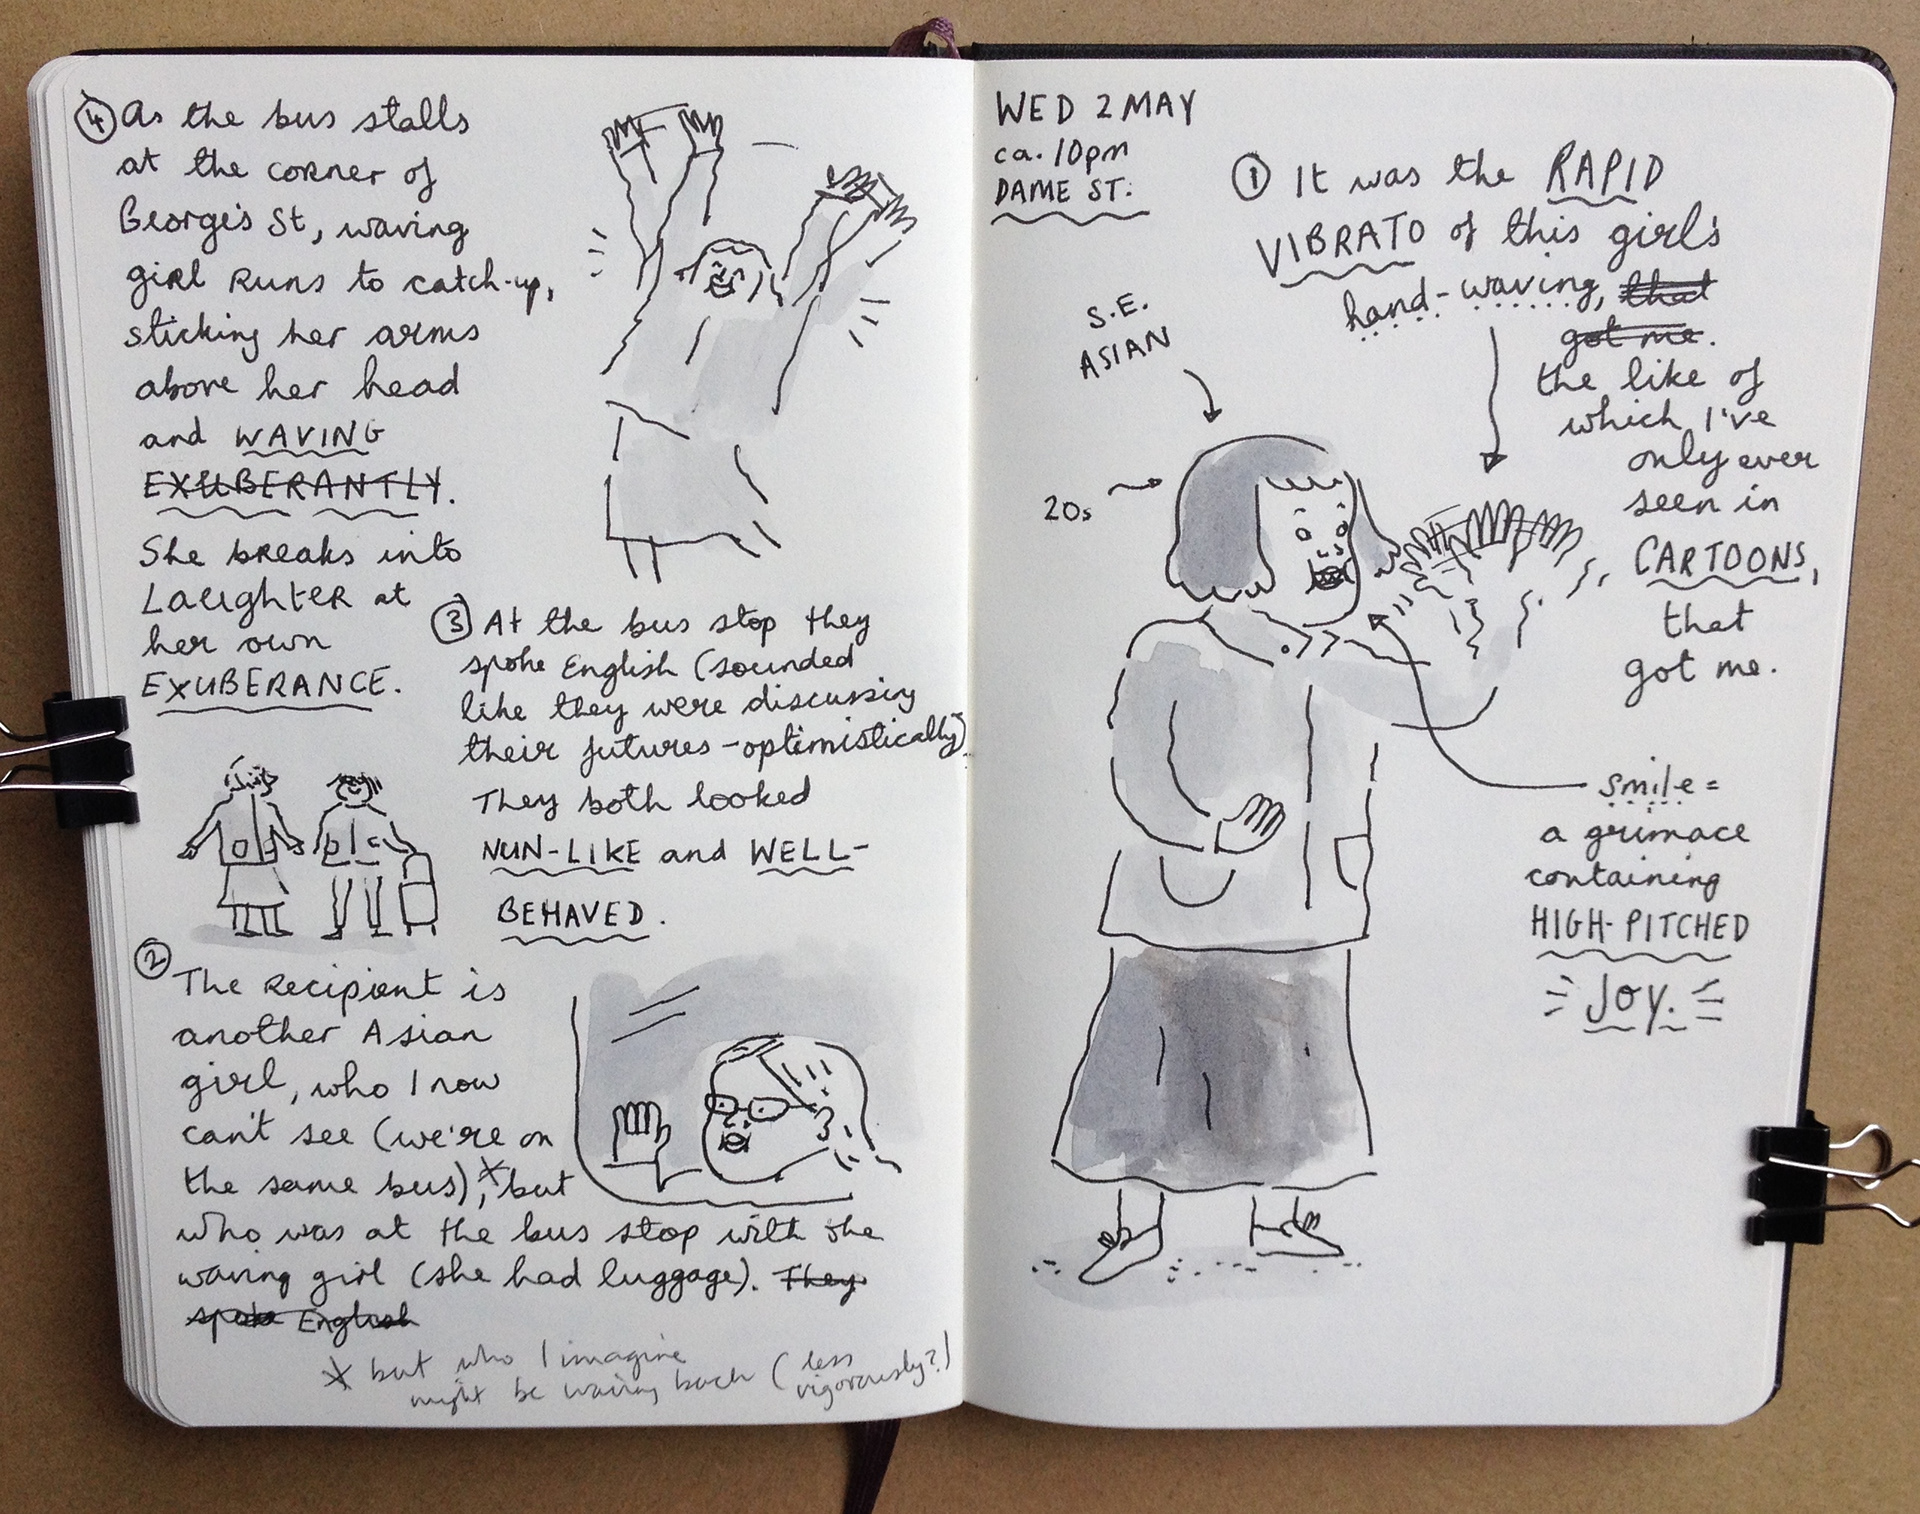 ④ As the bus stalls
at the corner of
George's St, waving
girl runs to catch-up,
sticking her arms
above her head
and WAVING
EXUBERANTLY.
She breaks into
Laughter at
her own
EXUBERANCE.
③ At the bus stop they
spoke English (sounded
like they were discussing
their futures - optimistically)
They both looked
NUN-LIKE and WELL-
BEHAVED.
② The recipient is
another Asian
girl, who I now
can't see (we're on
the same bus),* but
who was at the bus stop with the
waving girl (she had luggage). They
spoke English
* but who I imagine
might be waving back (less
vigorously?)
WED 2 MAY
ca. 10pm
DAME ST.
① It was the RAPID
VIBRATO of this girl's
hand-waving, that
got me.
the like of
which I've
only ever
seen in
CARTOONS,
that
got me.
S.E.
ASIAN
20s
smile =
a grimace
containing
HIGH-PITCHED
JOY.